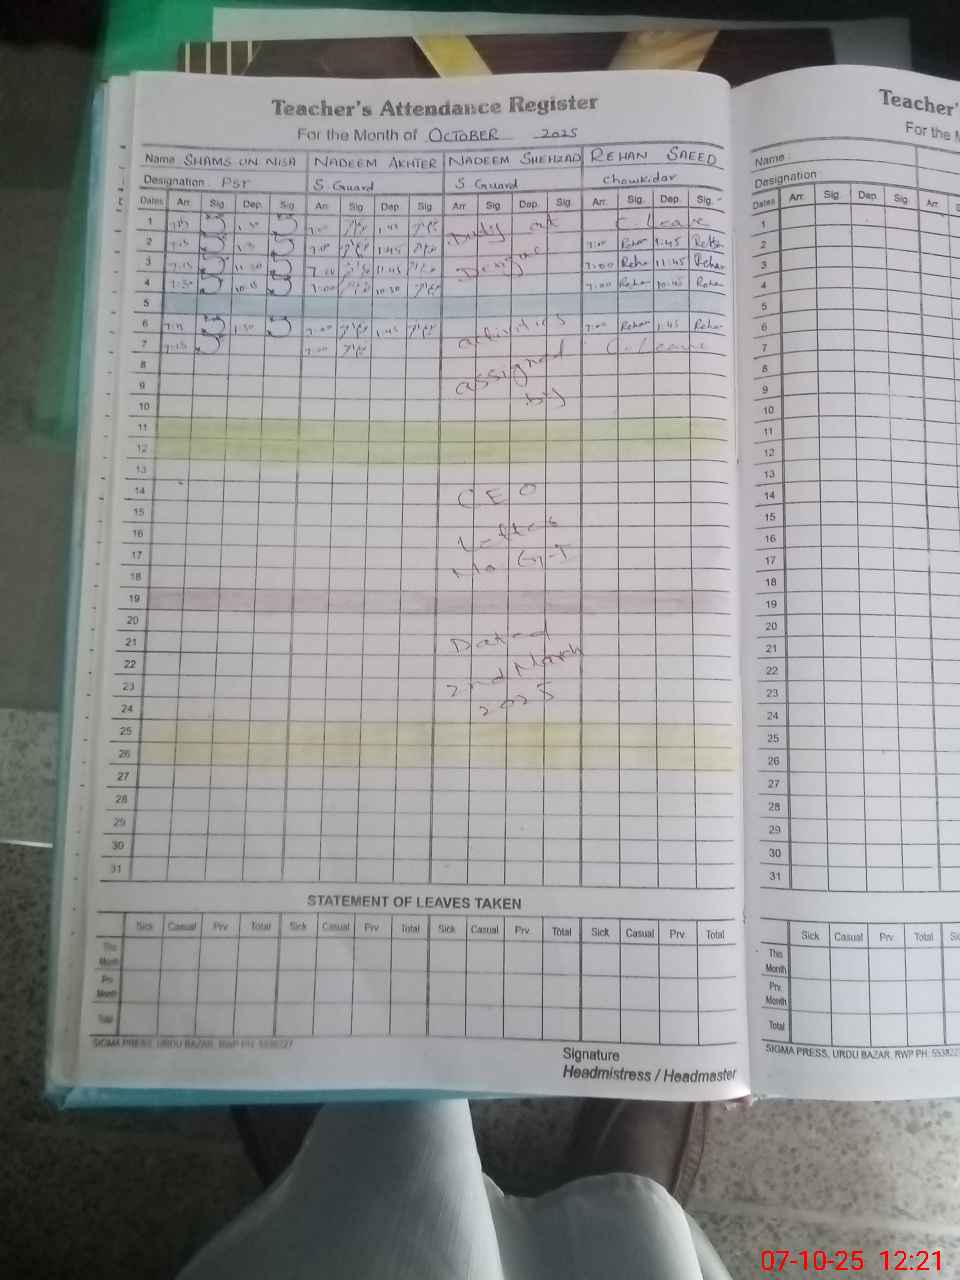 Teacher's Attendance Register
For the Month of OCTOBER 2025
Name SHAMS UN NISA NADEEM AKHTER NADEEM SHEHZAD REHAN SAEED
Designation : PST S Guard S Guard Chowkidar
Dates Arr. Sig. Dep. Sig Arr. Sig. Dep. Sig Arr. Sig. Dep. Sig. Arr. Sig. Dep. Sig.
1 7:00 1:45 Duty at C. Leave
2 1:45 7:00 Rehan 1:45 Rehan
3 7:15 11:30 7:00 11:45 7:00 Rehan 11:45 Rehan
4 7:30 10:15 7:00 10:30 7:00 Rehan 10:45 Rehan
5
6 1:30 7:00 1:45 activities 7:00 Rehan 1:45 Rehan
7 7:15 7:00 C. Leave
8 assigned
9 by
10
11
12
13
14 CEO
15
16
17
18
19
20
21 Dated
22 2nd March
23
24 2025
25
26
27
28
29
30
31
STATEMENT OF LEAVES TAKEN
Sick Casual Prv. Total Sick Casual Prv. Total Sick Casual Prv. Total Sick Casual Prv. Total
This Month
Prv. Month
Total
SIGMA PRESS, URDU BAZAR, RWP PH: 5538227
Signature
Headmistress / Headmaster
Teacher'
For the M
Name :
Designation :
Dates Arr. Sig. Dep. Sig Arr.
1
2
3
4
5
6
7
8
9
10
11
12
13
14
15
16
17
18
19
20
21
22
23
24
25
26
27
28
29
30
31
Sick Casual Prv. Total
This Month
Prv. Month
Total
SIGMA PRESS, URDU BAZAR, RWP PH: 553822
07-10-25 12:21